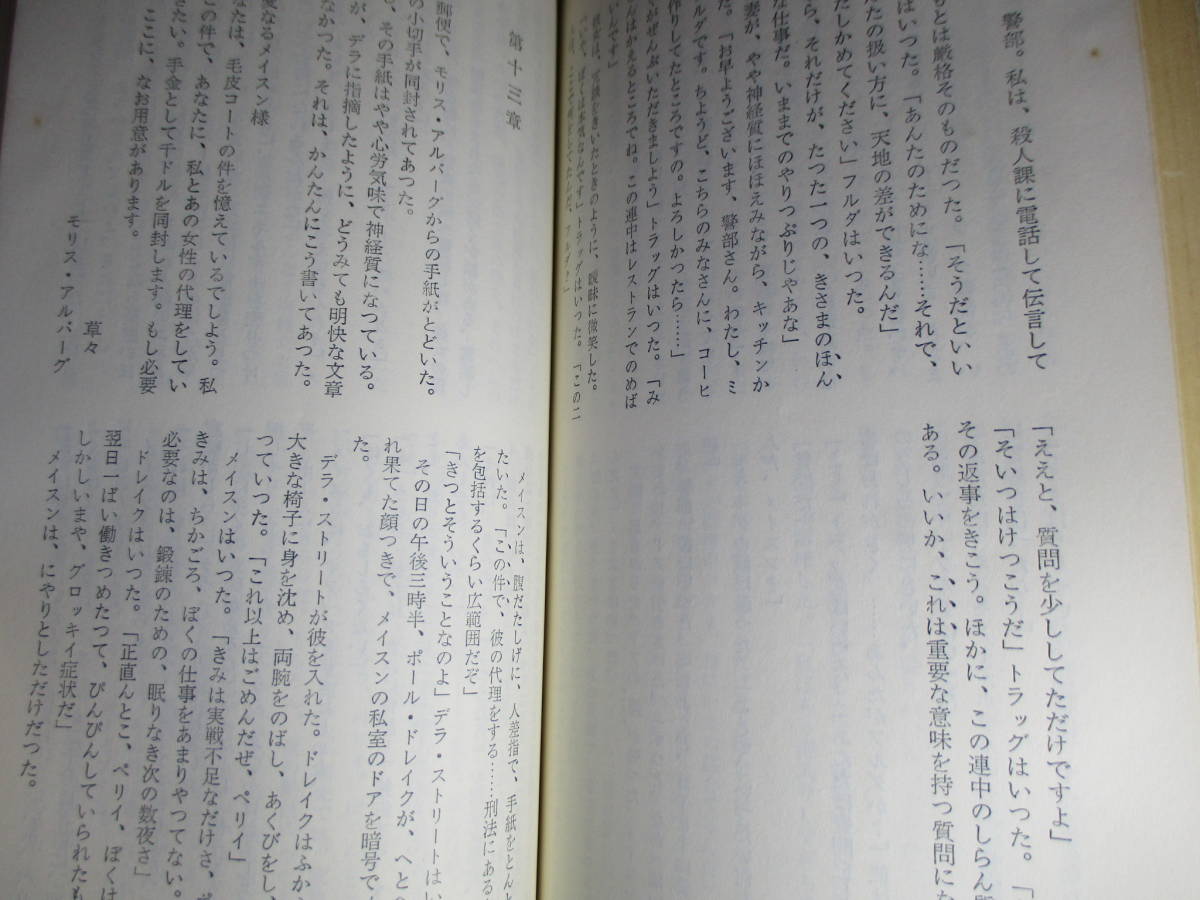 警部。私は、殺人課に電話して伝言して
もとは厳格そのものだった。「そうだといい
はいつた。「あんたのためにな……それで、
たの扱い方に、天地の差ができるんだ」
たしかめてください」フルダはいつた。
ら、それだけが、たった一つの、きさまのほん
な仕事だ。いままでのやりつぷりじゃあな」
妻が、やや神経質にほほえみながら、キッチンか
た。「お早ようございます、警部さん。わたし、ミ
ルダです。ちようど、こちらのみなさんに、コーヒ
作りしてたところですの。よろしかつたら……」
がぜんぶいただきましよう」トラッグはいつた。「み
んはかえるところでね。この連中はレストランでのめば
いんです」
曖昧に微笑した。
トラッグはいつた。「この二
「ええと、質問を少ししてただけですよ」
「そいつはけつこうだ」トラッグはいつた。「
その返事をきこう。ほかに、この連中のしらん質
ある。いいか、これは重要な意味を持つ質問にな
第十三章
郵便で、モリス・アルバーグからの手紙がとどいた。
の小切手が同封されてあつた。
も、その手紙はやや心労気味で神経質になつている。
が、デラに指摘したように、どうみても明快な文章
なかつた。それは、かんたんにこう書いてあつた。
愛なるメイスン様
なたは、毛皮コートの件を憶えているでしよう。私
この件で、あなたに、私とあの女性の代理をしてい
きたい。手金として千ドルを同封します。もし必要
ここに、なお用意があります。
草々
モリス・アルバーグ
メイスンは、腹だたしげに、人差指で、手紙をとんと
たいた。「この件で、彼の代理をする……刑法にある
を包括するくらい広範囲だぞ」
「きつとそういうことなのよ」デラ・ストリートはい
その日の午後三時半、ポール・ドレイクが、へとへ
れ果てた顔つきで、メイスンの私室のドアを暗号で
た。
デラ・ストリートが彼を入れた。ドレイクはふか
大きな椅子に身を沈め、両腕をのばし、あくびをし、
つていつた。「これ以上はごめんだぜ、ペリイ」
メイスンはいつた。「きみは実戦不足なだけさ、ポ
きみは、ちかごろ、ぼくの仕事をあまりやつてない。
必要なのは、鍛錬のための、眠りなき次の数夜さ」
ドレイクはいつた。「正直んとこ、ペリイ、ぼくは
翌日一ぱい働きつめたつて、ぴんぴんしていられたも
しかしいまや、グロッキイ症状だ」
メイスンは、にやりとしただけだつた。